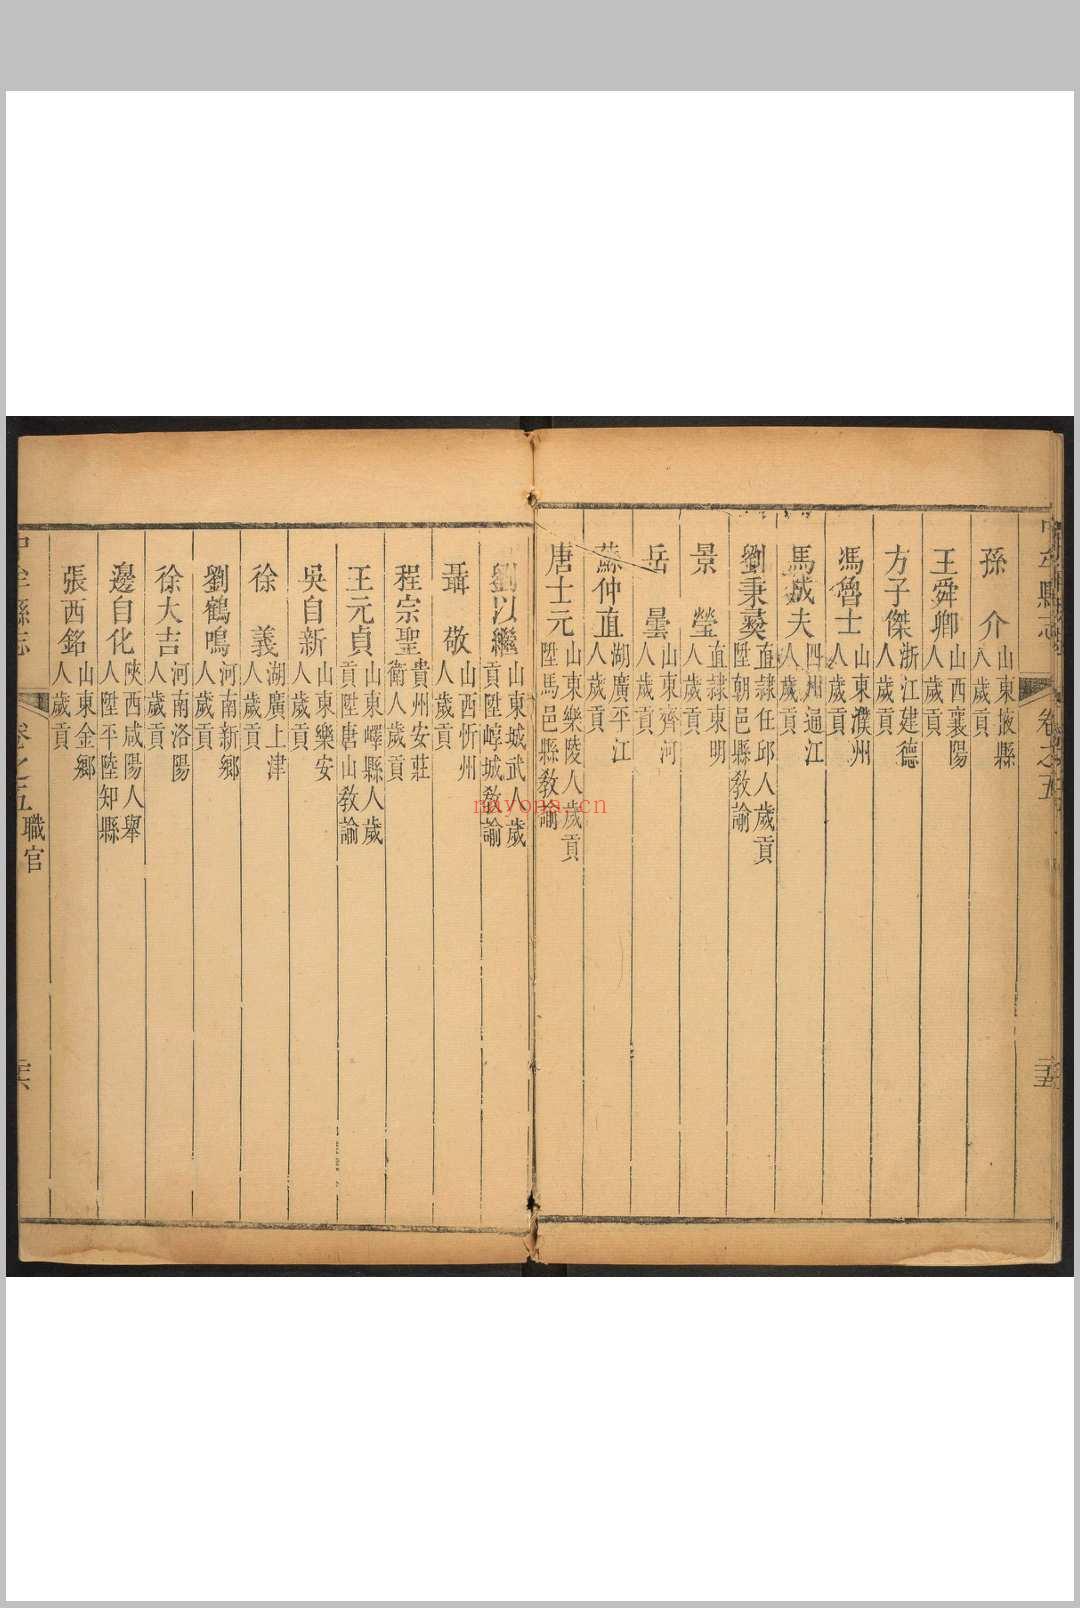 中牟縣志 卷之五
孫介 山東掖縣人歲貢
王舜卿 山西襄陽人歲貢
方子傑 浙江建德人歲貢
馮魯士 山東濮州人歲貢
馬成夫 四川通江人歲貢
劉秉彞 直隷任邱人歲貢陞朝邑縣敎諭
景瑩 直隷東明人歲貢
岳曇 山東齊河人歲貢
蘇仲直 湖廣平江人歲貢
唐士元 山東樂陵人歲貢陞馬邑縣敎諭
劉以繼 山東城武人歲貢陞崞城敎諭
聶敬 山西忻州人歲貢
程宗聖 貴州安莊衛人歲貢
王元貞 山東嶧縣人歲貢陞唐山敎諭
吳自新 山東樂安人歲貢
徐義 湖廣上津人歲貢
劉鶴鳴 河南新鄉人歲貢
徐大吉 河南洛陽人歲貢
邊自化 陝西咸陽人舉人陞平陸知縣
張西銘 山東金鄉人歲貢
中牟縣志 卷之五 職官 二六
nayona.cn